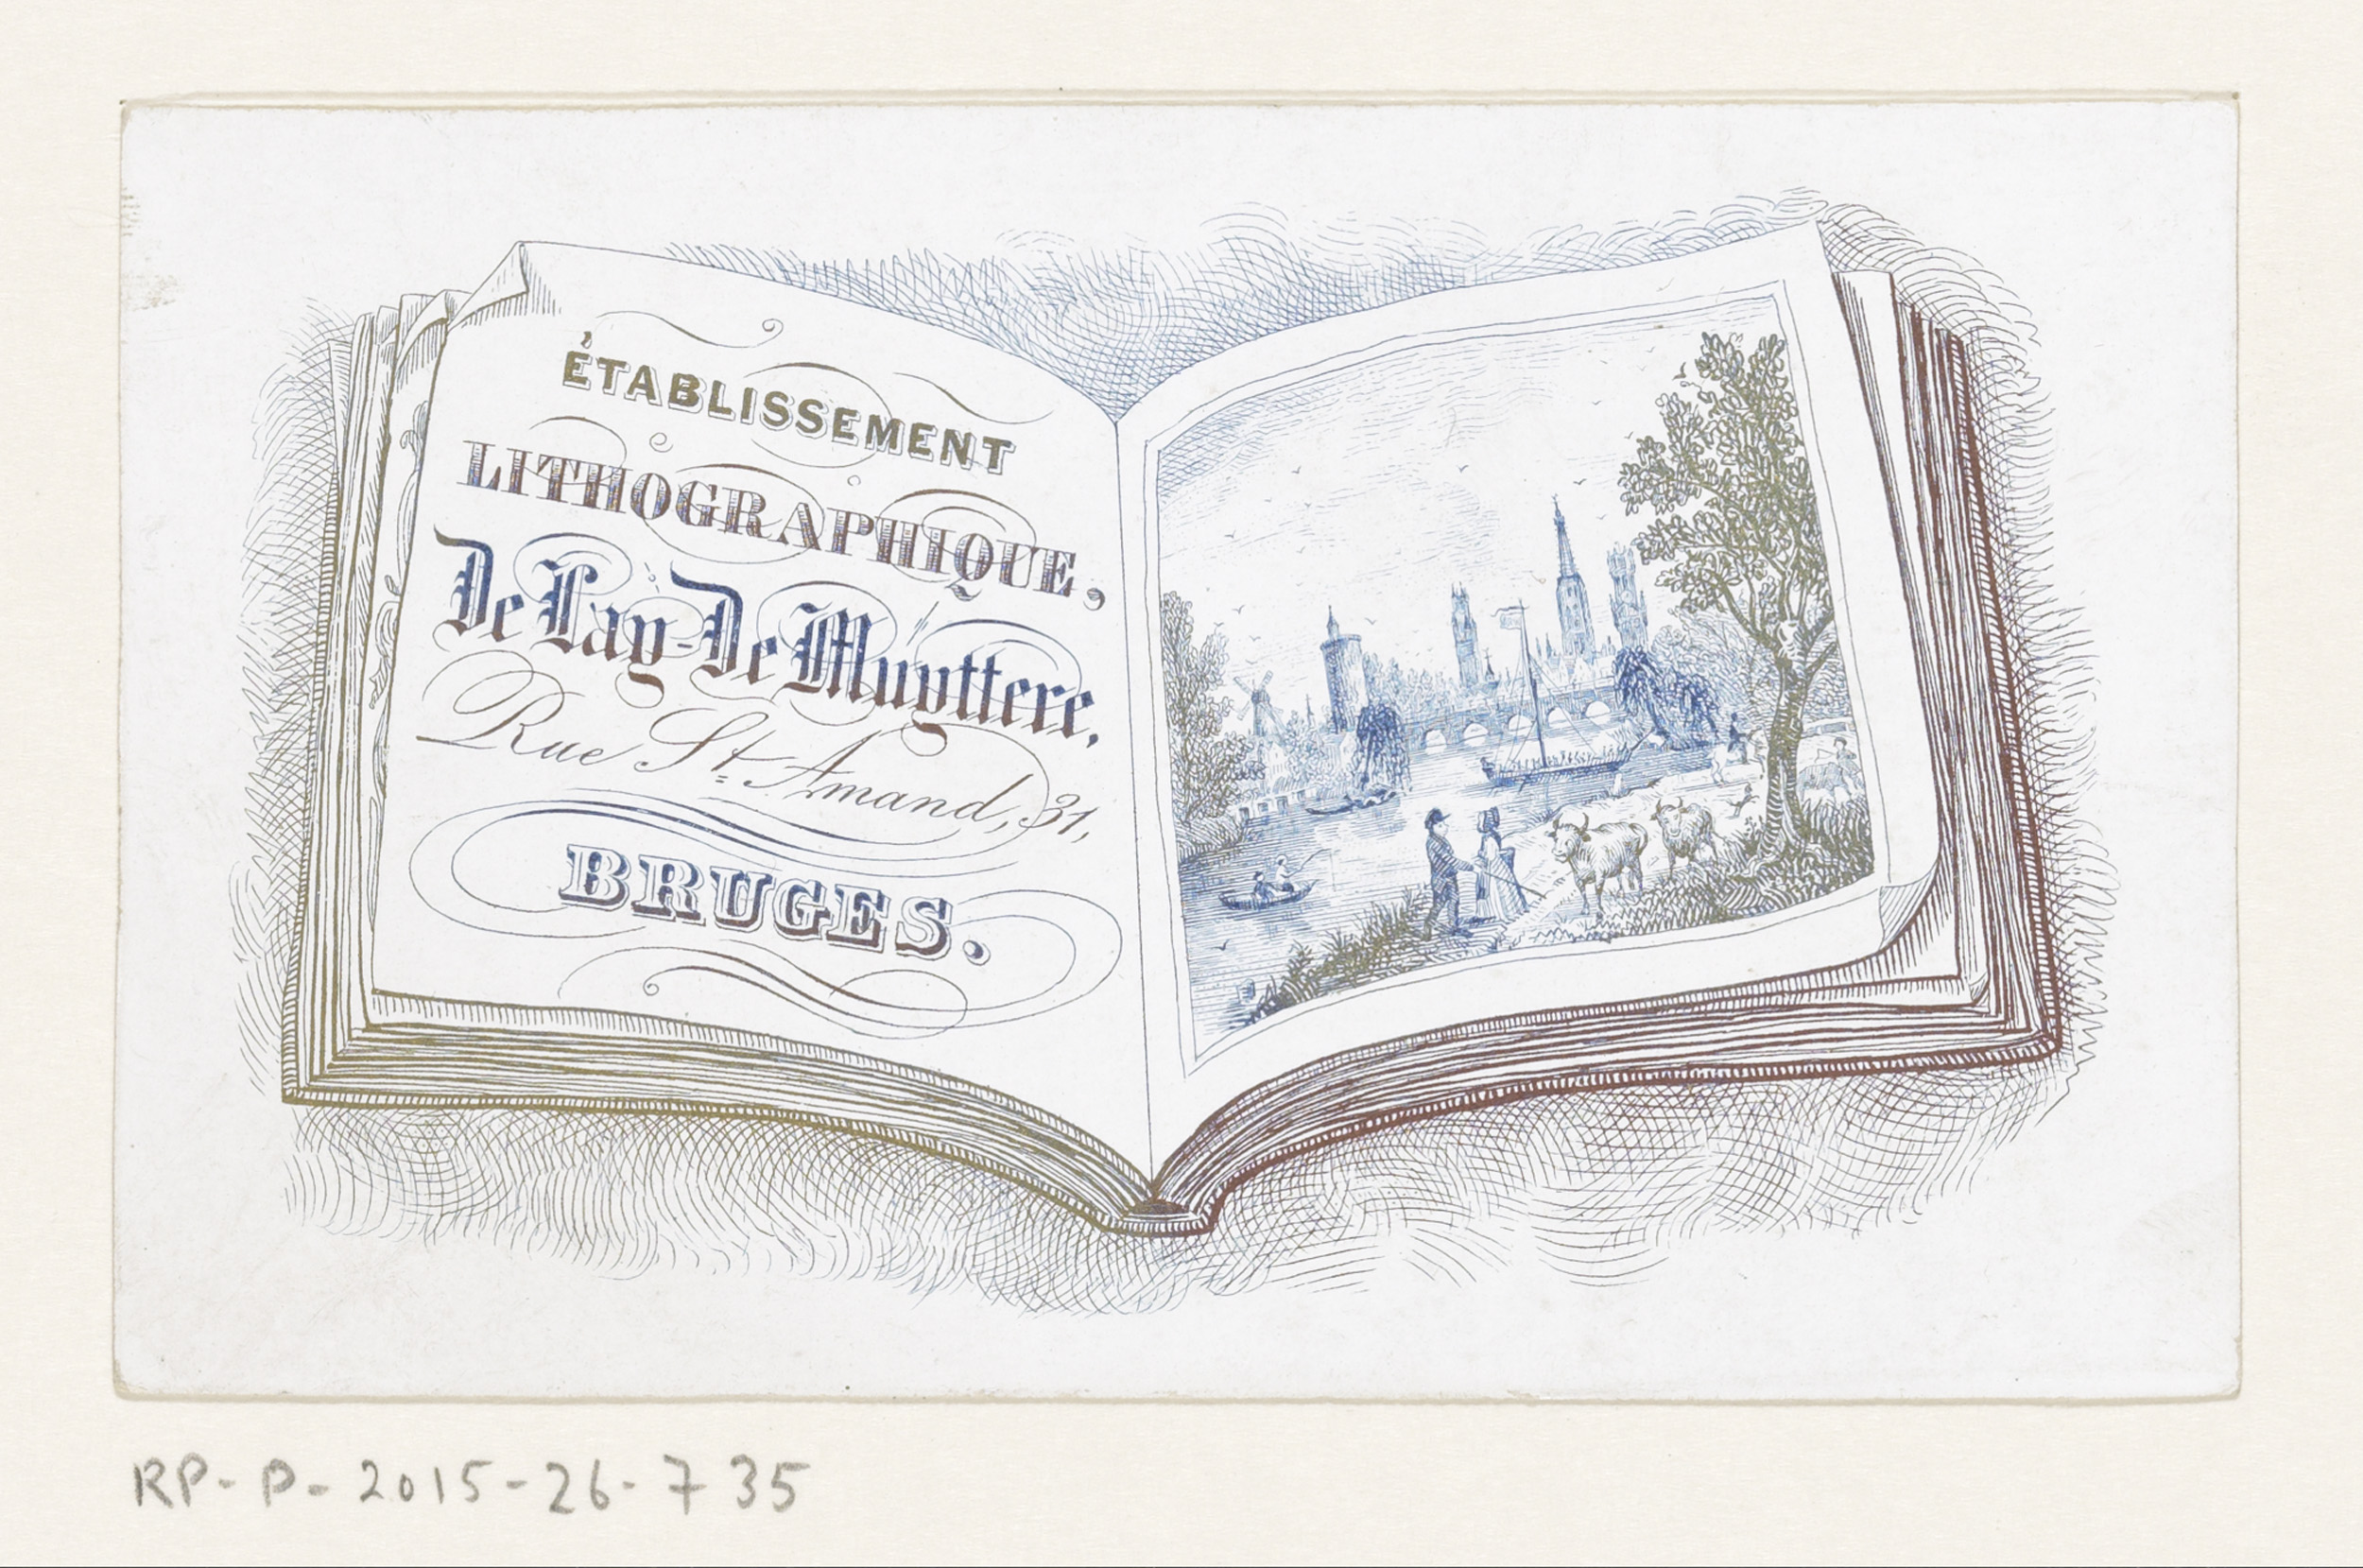 ÉTABLISSEMENT
LITHOGRAPHIQUE,
De Lay-De Muyttere,
Rue St. Amand, 31,
BRUGES.
RP-P-2015-26-735